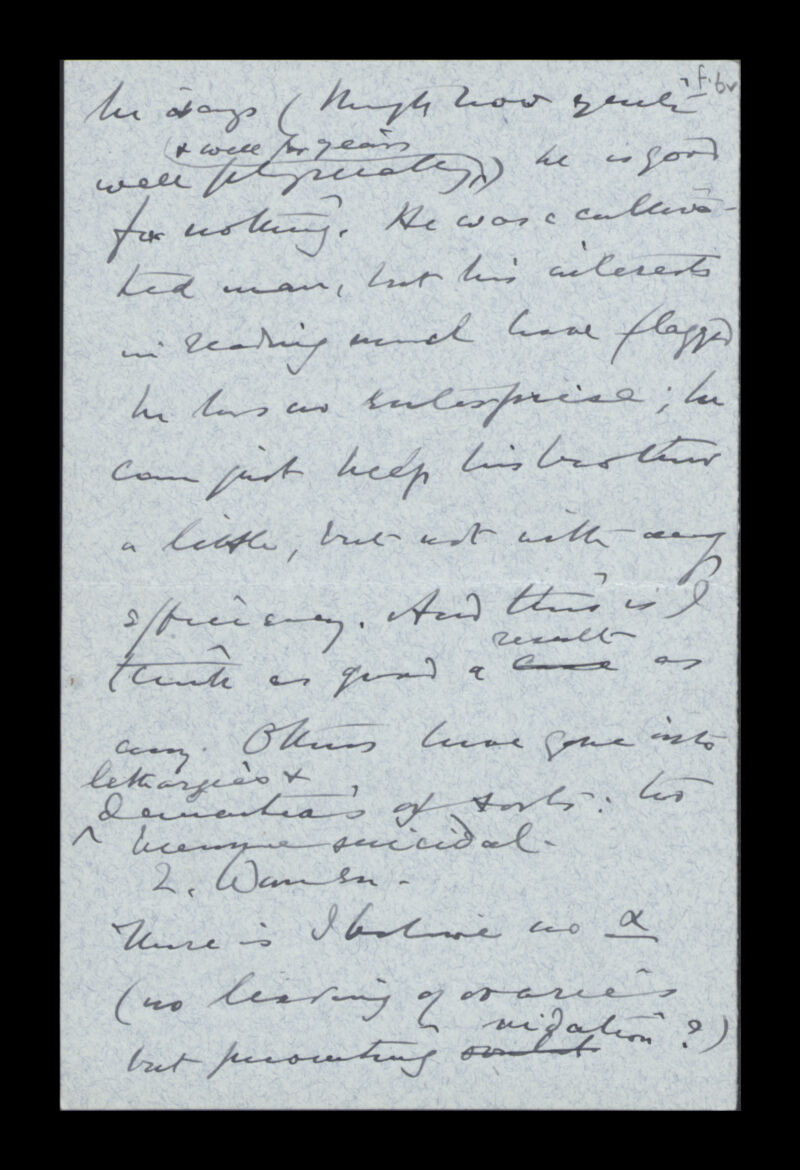 f.6v
he says (though now quite
& well for years
well physically,) he is good
for nothing. He was a cultiva-
ted man, but his interests
in reading much have flagged
he has no enterprise; he
can just help his brother
a little, but not with any
efficiency. And this is I
result
think as good a case as
any. Others have gone into
lethargies &
dementias of sorts: two
became suicidal.
2. Women.
There is I believe no α
(no of ovaries
nidation ?)
but preventing